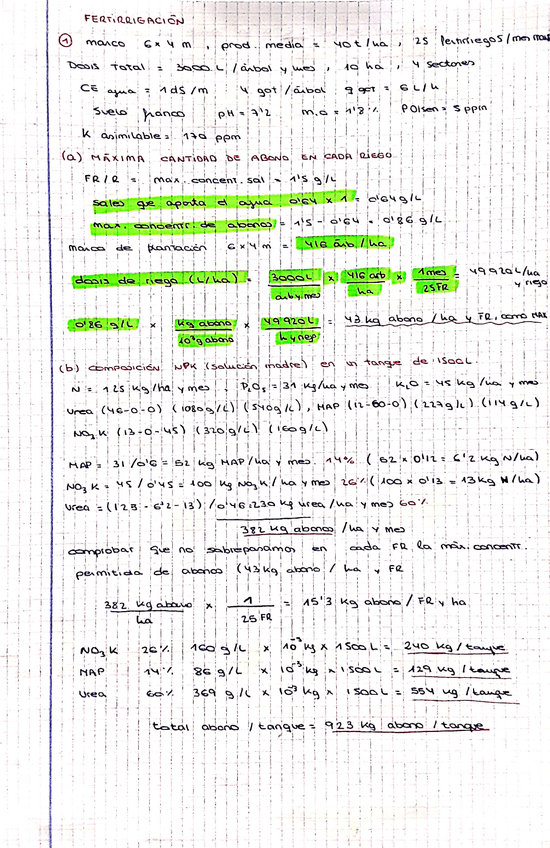 FERTIRRIGACIÓN
① marco 6x4 m, prod. media = 40 t/ha, 25 fertirriegos/mes
Dosis total = 3000 L/árbol y mes, 10 ha, 4 sectores
CE agua = 1 dS/m 4 got/árbol q got = 6 L/h
Suelo franco pH = 7'2 m.o = 1'8% P Olsen = 5 ppm
K asimilable = 170 ppm
(a) MÁXIMA CANTIDAD DE ABONO EN CADA RIEGO
FR/R = max. concent. sal = 1'5 g/L
Sales que aporta el agua 0'64 x 1 = 0'64 g/L
max. concentr. de abonos = 1'5 - 0'64 = 0'86 g/L
marco de plantación 6x4 m = 416 árb/ha
dosis de riego (L/ha) = 3000 L / árb y mes x 416 árb / ha x 1 mes / 25 FR = 49920 L/ha y riego
0'86 g/L x kg abono / 10³ g abono x 49920 L / h y riego = 43 kg abono/ha y FR, como MAX
(b) composición NPK (solución madre) en un tanque de 1500 L.
N = 125 kg/ha y mes, P₂O₅ = 31 kg/ha y mes K₂O = 45 kg/ha y mes
Urea (46-0-0) (1080 g/L) (540 g/L), MAP (12-60-0) (227 g/L) (114 g/L)
NO₃K (13-0-45) (320 g/L) (160 g/L)
MAP = 31/0'6 = 52 kg MAP/ha y mes 14% (52 x 0'12 = 6'2 kg N/ha)
NO₃K = 45/0'45 = 100 kg NO₃K/ha y mes 26% (100 x 0'13 = 13 kg N/ha)
Urea = (125 - 6'2 - 13)/0'46 = 230 kg urea/ha y mes 60%
382 kg abono/ha y mes
comprobar que no sobrepasamos en cada FR la máx. concentr.
permitida de abonos (43 kg abono/ha y FR
382 kg abono / ha x 1 / 25 FR = 15'3 kg abono/FR y ha
NO₃K 26% 160 g/L x 10⁻³ kg x 1500 L = 240 kg/tanque
MAP 14% 86 g/L x 10⁻³ kg x 1500 L = 129 kg/tanque
Urea 60% 369 g/L x 10⁻³ kg x 1500 L = 554 kg/tanque
total abono/tanque = 923 kg abono/tanque